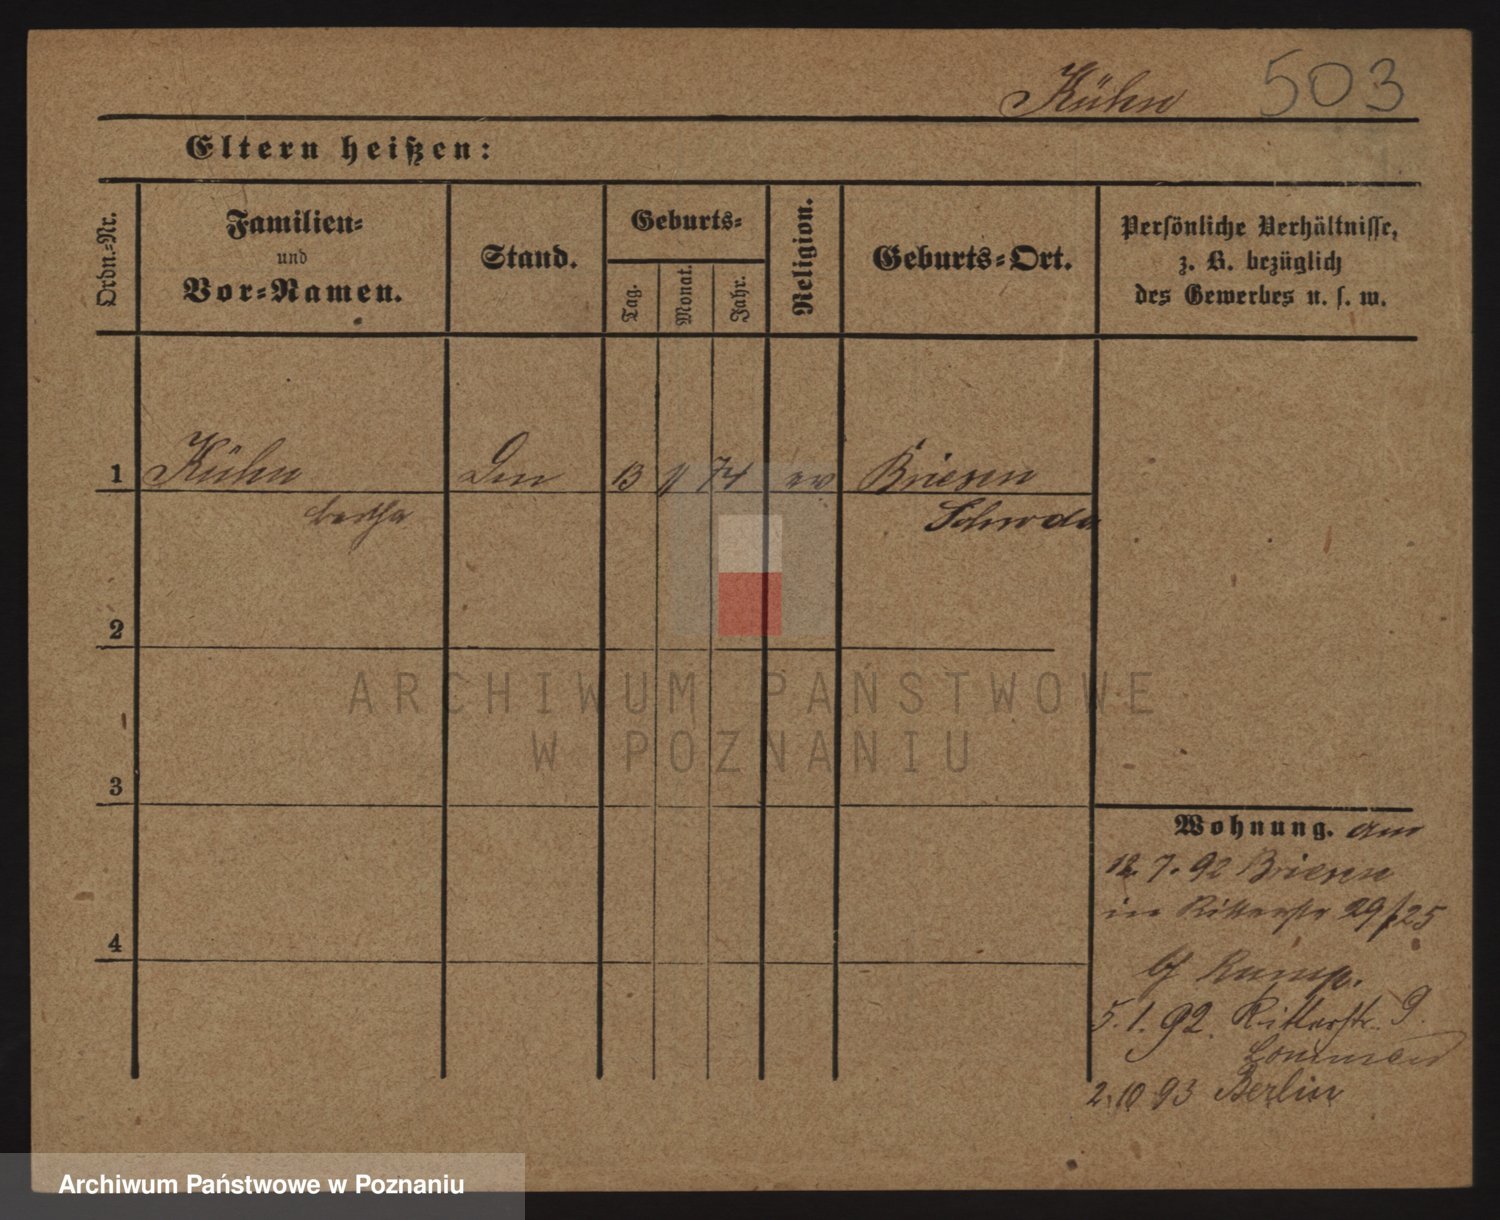 Kühn 503
Eltern heißen:
Ordn.-Nr.
Familien-
und
Vor-Namen.
Stand.
Geburts-
Tag.
Monat.
Jahr.
Religion.
Geburts-Ort.
Persönliche Verhältnisse,
z. B. bezüglich
des Gewerbes u. s. w.
1 Kühn 13 74 ev Briesen
bertha Schroda
2
ARCHIWUM PAŃSTWOWE
W POZNANIU
3
Wohnung. am
12.7.92 Briesen
in Ritterstr 29/25
4
bf Kump.
5.1.92. Ritterstr. 9.
2.10 93 Berlin
Archiwum Państwowe w Poznaniu